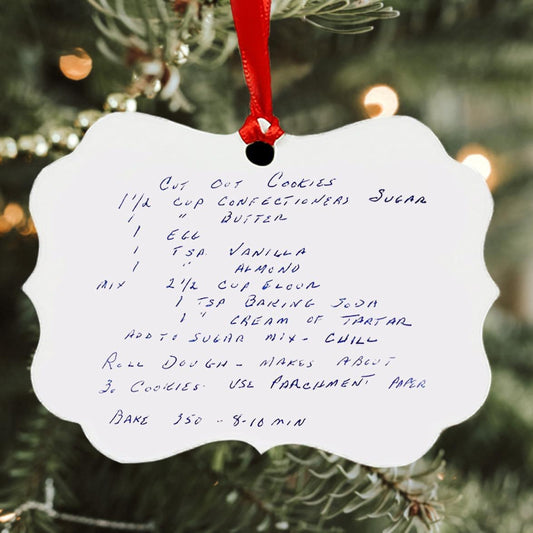 CUT OUT COOKIES
1 1/2 CUP CONFECTIONERS SUGAR
1 " BUTTER
1 EGG
1 TSP. VANILLA
1 " ALMOND
MIX 2 1/2 CUP FLOUR
1 TSP BAKING SODA
1 " CREAM OF TARTAR
ADD TO SUGAR MIX - CHILL
ROLL DOUGH - MAKES ABOUT
30 COOKIES. USE PARCHMENT PAPER
BAKE 350 - 8-10 MIN